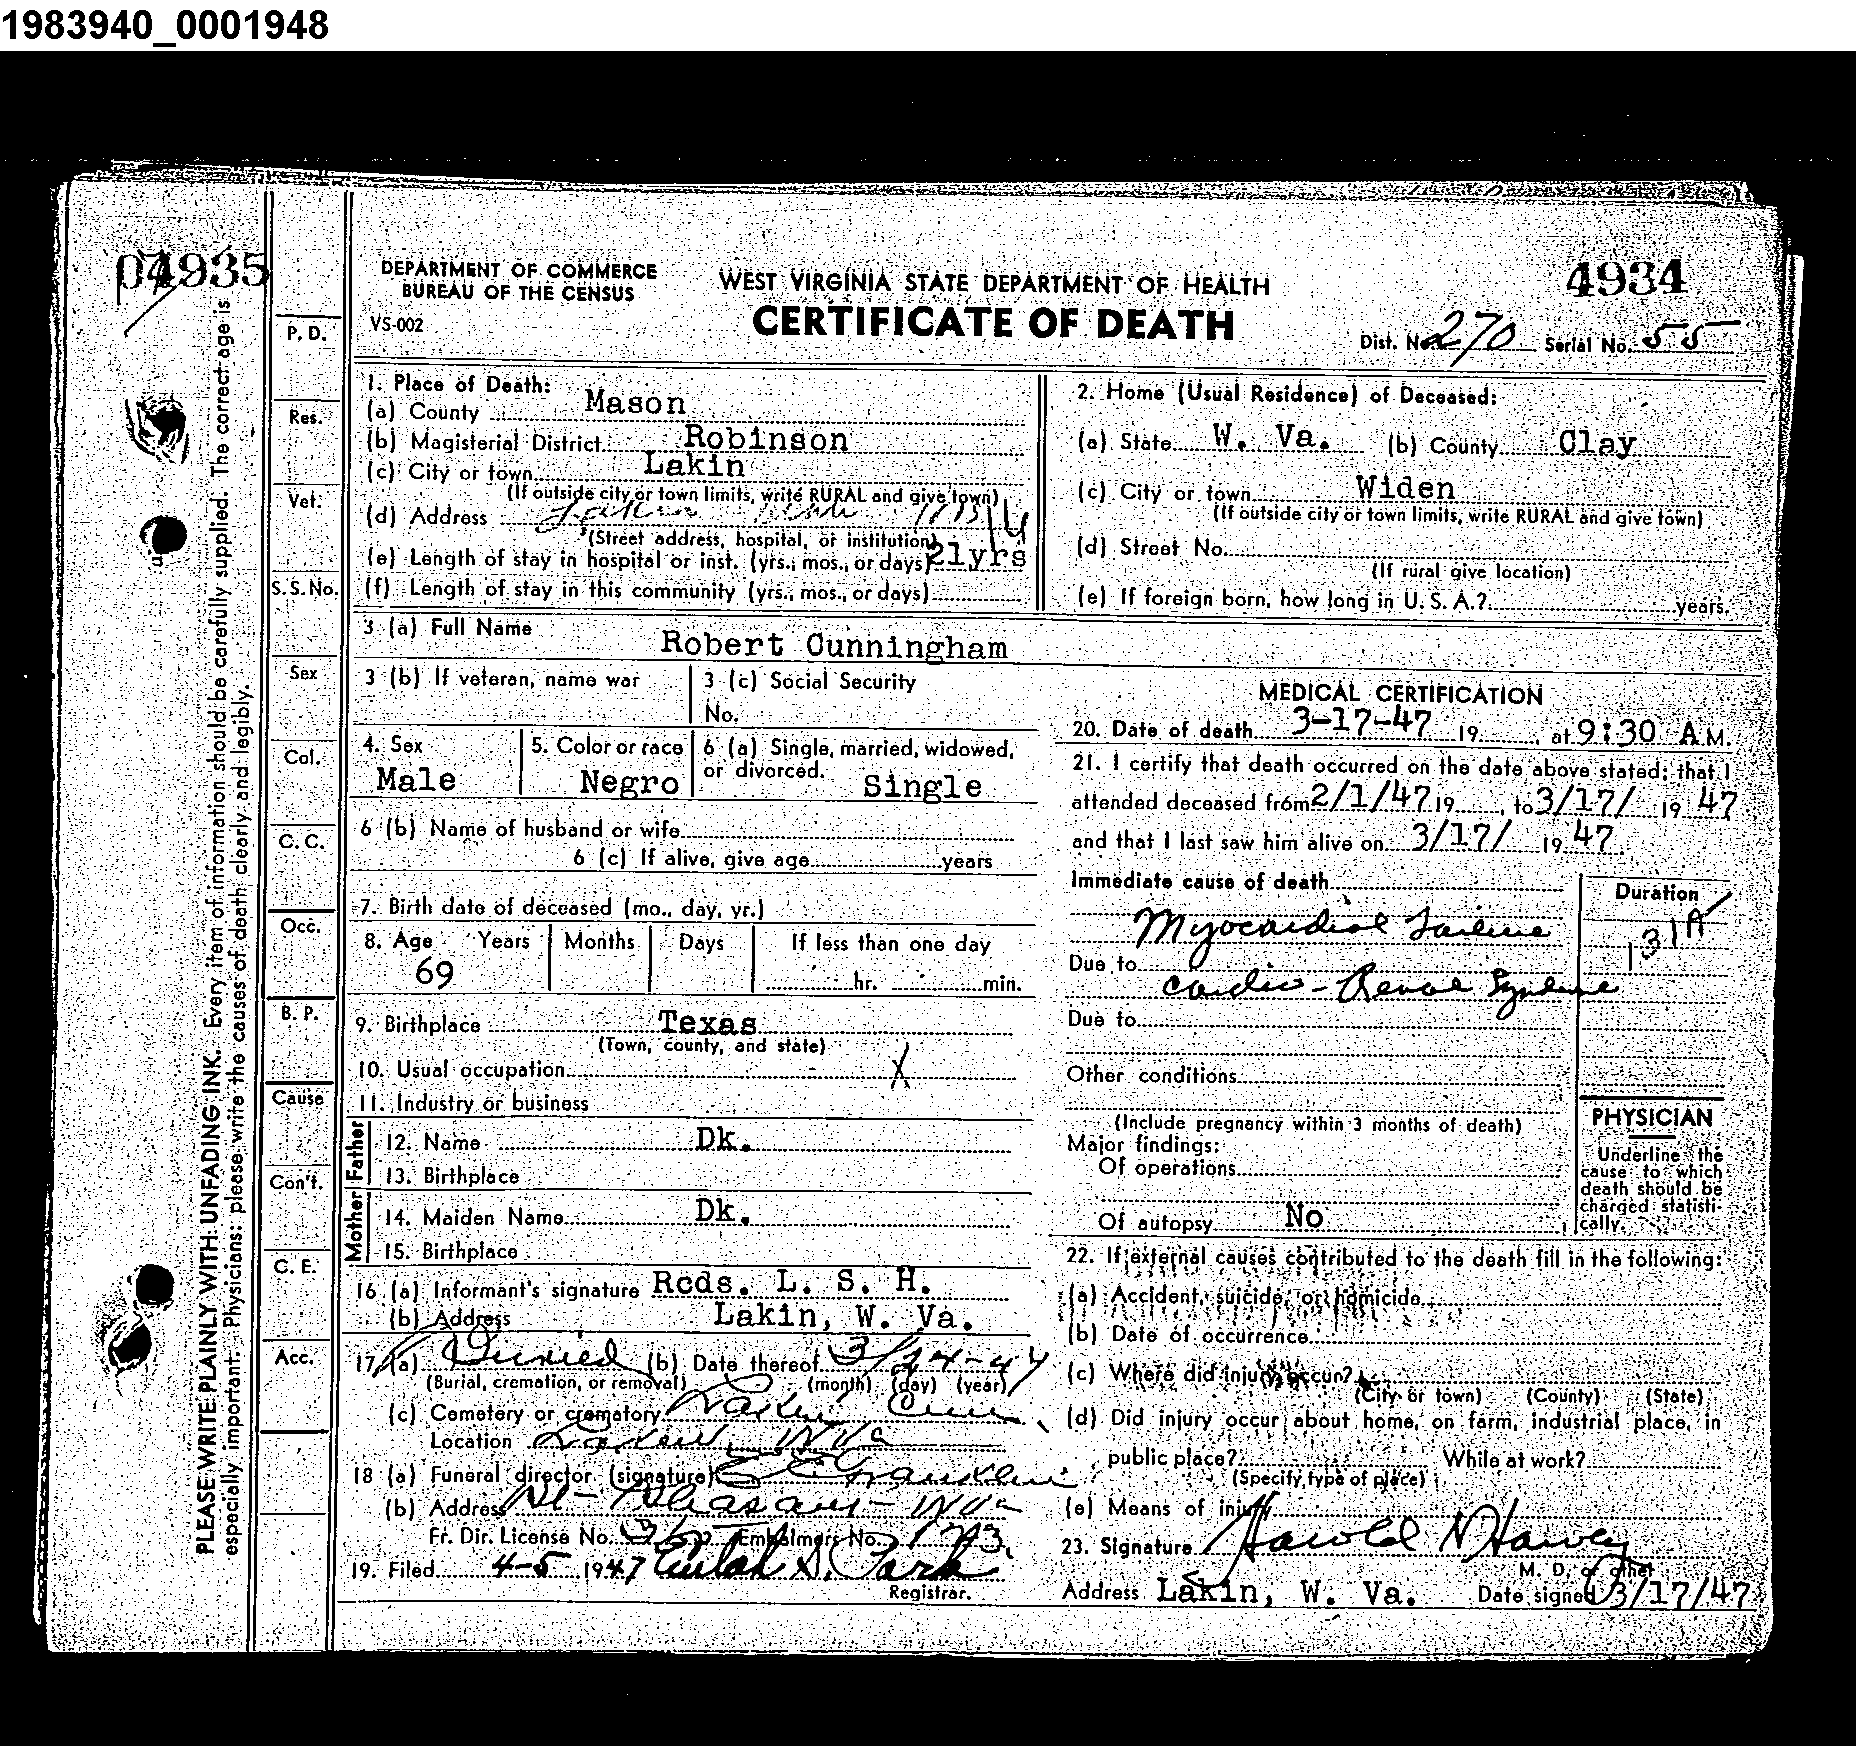 1983940_0001948
04935
DEPARTMENT OF COMMERCE
BUREAU OF THE CENSUS
VS-002
WEST VIRGINIA STATE DEPARTMENT OF HEALTH
CERTIFICATE OF DEATH
4934
Dist. No. 270 Serial No. 55
PLEASE WRITE PLAINLY WITH UNFADING INK. Every item of information should be carefully supplied. The correct age is
especially important. Physicians: please write the causes of death clearly and legibly.
P. D.
Res.
Vet.
S. S. No.
Sex
Col.
C. C.
Occ.
B. P.
Cause
Con't.
C. E.
Acc.
1. Place of Death:
(a) County Mason
(b) Magisterial District Robinson
(c) City or town Lakin
(If outside city or town limits, write RURAL and give town)
(d) Address Lakin
(Street address, hospital, or institution)
(e) Length of stay in hospital or inst. (yrs., mos., or days) 21yrs
(f) Length of stay in this community (yrs., mos., or days)
2. Home (Usual Residence) of Deceased:
(a) State W. Va. (b) County Clay
(c) City or town Widen
(If outside city or town limits, write RURAL and give town)
(d) Street No.
(If rural give location)
(e) If foreign born, how long in U. S. A.? years.
3 (a) Full Name Robert Cunningham
3 (b) If veteran, name war
3 (c) Social Security
No.
4. Sex Male
5. Color or race Negro
6 (a) Single, married, widowed,
or divorced. Single
6 (b) Name of husband or wife
6 (c) If alive, give age years
7. Birth date of deceased (mo., day, yr.)
8. Age Years Months Days If less than one day
69 hr. min.
9. Birthplace Texas
(Town, county, and state)
10. Usual occupation X
11. Industry or business
Father
12. Name Dk.
13. Birthplace
Mother
14. Maiden Name Dk.
15. Birthplace
16 (a) Informant's signature Rcds. L. S. H.
(b) Address Lakin, W. Va.
17 (a) Buried (b) Date thereof 3/24-47
(Burial, cremation, or removal) (month) (day) (year)
(c) Cemetery or crematory Lakin Cem.
Location Lakin, W Va
18 (a) Funeral director (signature) Franklin
(b) Address Pt-Pleasant-W Va
Fr. Dir. License No. Embalmers No.
19. Filed 4-5 1947 Eulah S. Park
Registrar.
MEDICAL CERTIFICATION
20. Date of death 3-17-47 19 , at 9:30 A.M.
21. I certify that death occurred on the date above stated; that I
attended deceased from 2/1/47 19 , to 3/17/ 19 47
and that I last saw him alive on 3/17/ 19 47.
Immediate cause of death Duration
Myocardial Failure
Due to
Cardio-Renal Syndrome
Due to
Other conditions
(Include pregnancy within 3 months of death)
Major findings:
Of operations
Of autopsy No
PHYSICIAN
Underline the
cause to which
death should be
charged statisti-
cally.
22. If external causes contributed to the death fill in the following:
(a) Accident, suicide, or homicide
(b) Date of occurrence
(c) Where did injury occur?
(City or town) (County) (State)
(d) Did injury occur about home, on farm, industrial place, in
public place? While at work?
(Specify type of place)
(e) Means of injury
23. Signature Harold
M. D. or other
Address Lakin, W. Va. Date signed 3/17/47